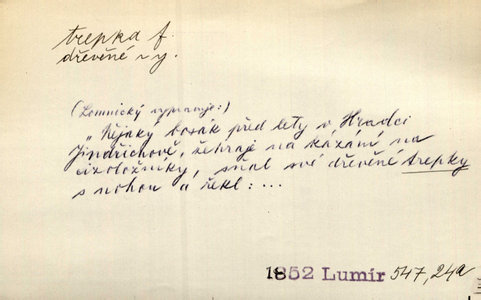 trepka f.
dřevěné ~y.
(Lomnický vypravuje:)
"Nějaký bosák před lety v Hradci
Jindřichově, žehraje na kázání na
cizoložníky, sňal své dřevěné trepky
s nohou a řekl: ...
1852 Lumír 547,24a